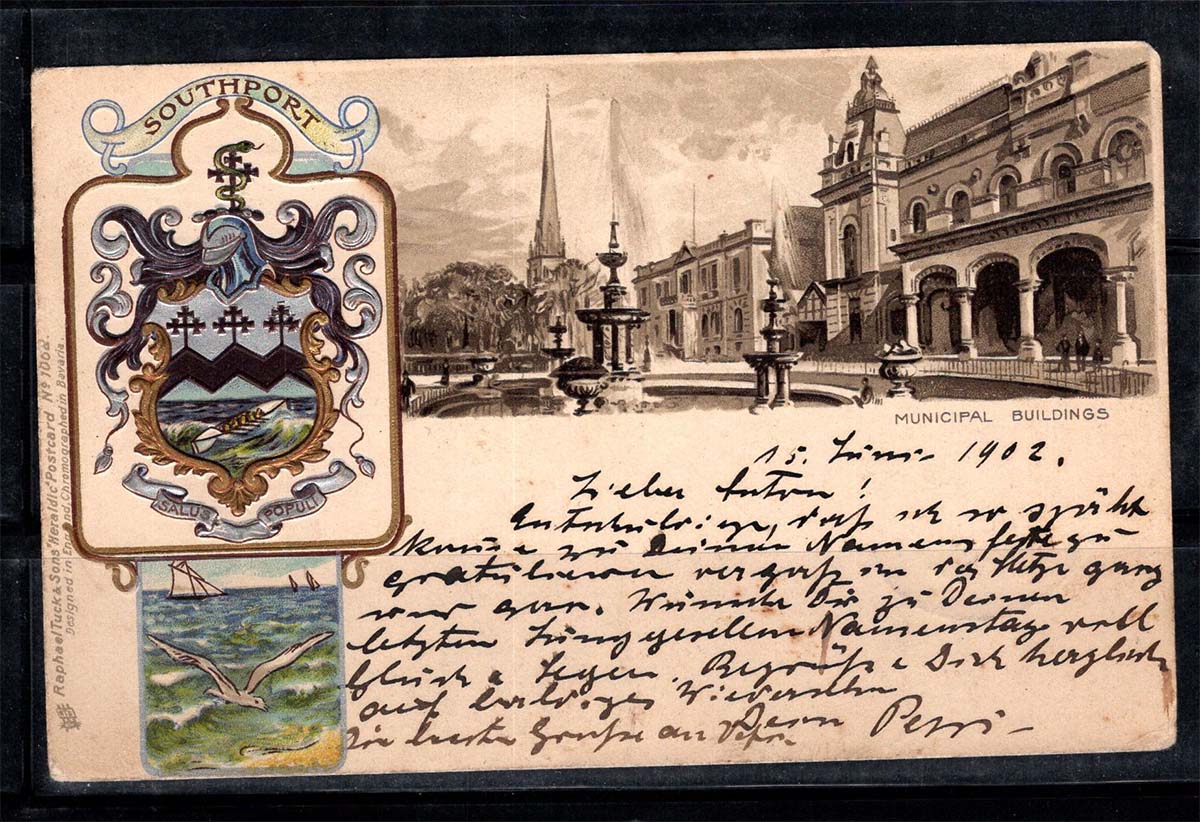 SOUTHPORT
SALUS POPULI
Raphael Tuck & Sons' "Heraldic" Postcard Nº 1002.
Designed in England, Chromographed in Bavaria.
MUNICIPAL BUILDINGS
15. Juni 1902.
Lieber Anton!
Entschuldige, daß ich so späth
komme zu Deinem Namensfeste zu
gratulieren vergaß in der Hetze ganz
Wünsche Dir zu Deinem
letzten Junggesellen Namenstage voll
Glück & Segen. Begrüße Dich herzlich
auf baldiges Wiedersehen
Dein Pepi
die besten Grüße an